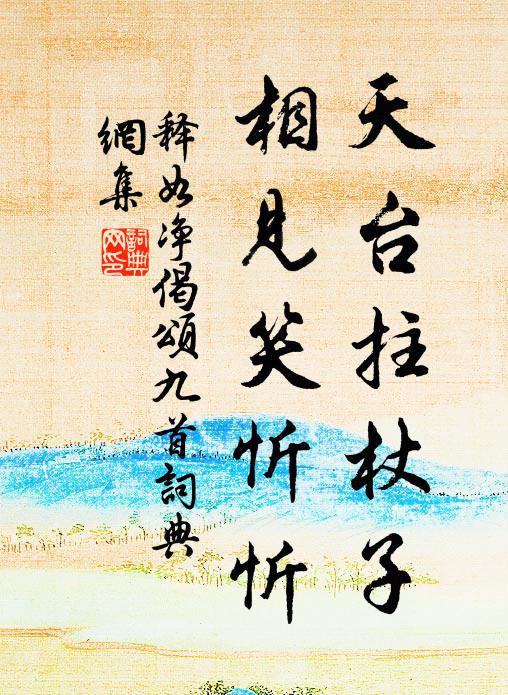 天台拄杖子
相見笑忻忻
释如净偈頌九首詞典
網集
詞典
网印